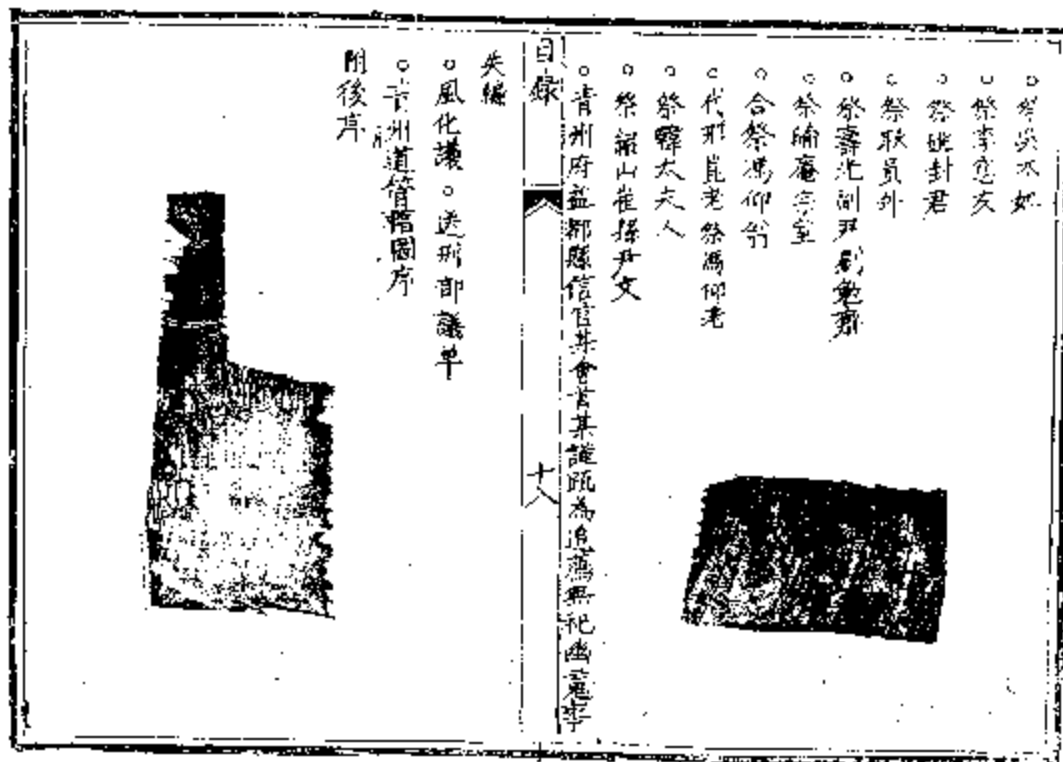 ○祭吳不如
○祭李友
○祭姚封君
○祭耿員外
○祭壽光副尹劉勉齋
○祭庵宗室
○合祭馮仰翁
○代邢崑老祭馮仰老
○祭韓太夫人
○祭羅山崔縣尹文
○青州府益都縣信官某會首某謹疏為追薦無祀幽魂事
目錄
十八
失編
○風化議 ○送刑部議单
○青州道管轄圖序
附後序